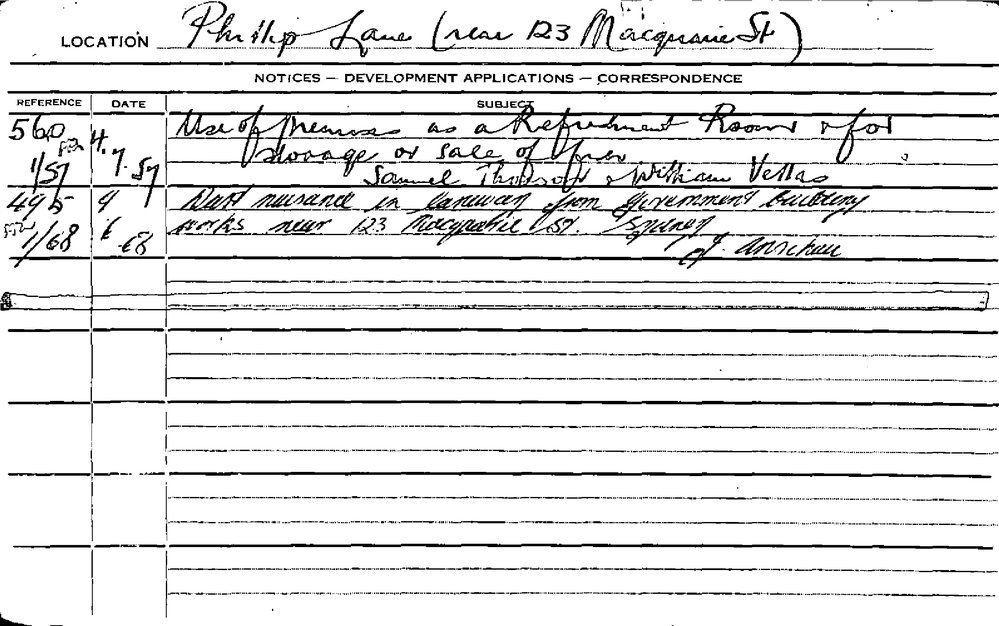 LOCATION Phillip Lane (near 123 Macquarie St)
NOTICES — DEVELOPMENT APPLICATIONS — CORRESPONDENCE
REFERENCE DATE SUBJECT
560 4. Use of premises as a Refreshment Room & for
1/57 7.57 storage or sale of
Samuel & William Vellas
495 4 Dust nuisance in laneway from government building
1/68 6 68 works near 123 Macquarie St. Sydney
J.